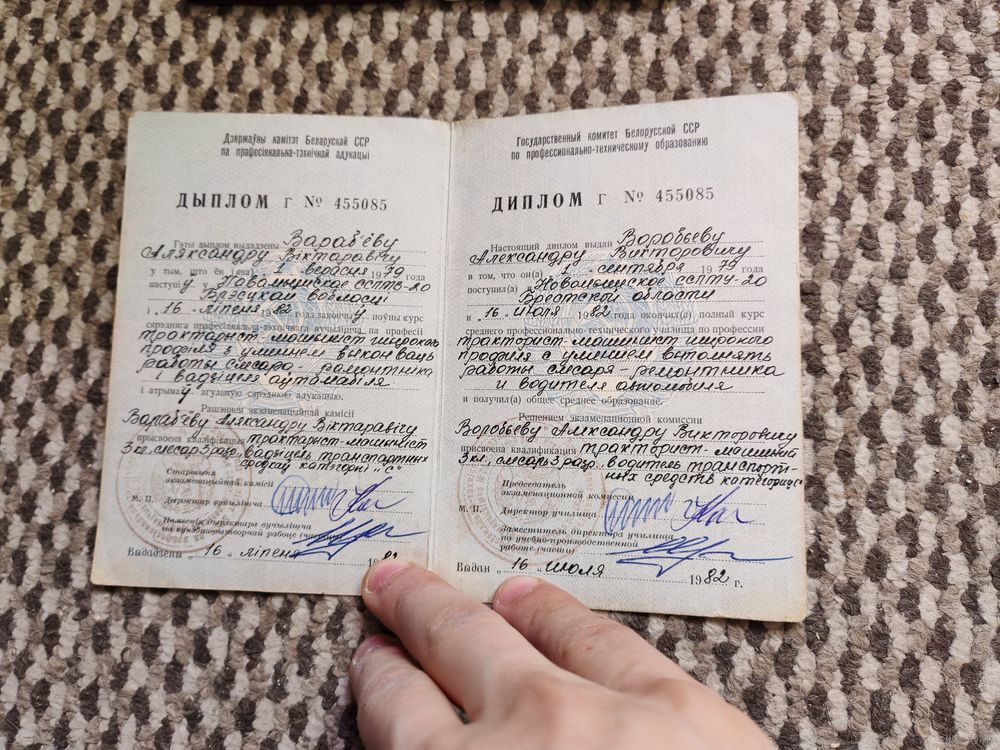 Дзяржаўны камітэт Беларускай ССР
па прафесіянальна-тэхнічнай адукацыі
ДЫПЛОМ Г № 455085
Гэты дыплом выдадзены Вараб'ёву
Аляксандру Віктаравічу
у тым, што ён (яна) 1 верасня 1979 года
паступіў у Навамышское ССПТВ-20
Брэсцкай вобласці
і „16„ ліпеня 1982 года закончыў поўны курс
сярэдняга прафесіянальна-тэхнічнага вучылішча па прафесіі
трактарыст-машыніст шырокага
профіля з уменнем выконваць
работы слесара-рамонтніка
і вадзіцеля аўтамабіля
і атрымаў агульную сярэднюю адукацыю.
Рашэннем экзаменацыйнай камісіі
Вараб'ёву Аляксандру Віктаравічу
прысвоена кваліфікацыя трактарыст-машыніст
3 кл., слесар 3 разр., вадзіцель транспартных
сродкаў катэгорыі „С"
Старшыня
экзаменацыйнай камісіі
М. П. Дырэктар вучылішча
Намеснік дырэктара вучылішча
па вучэбна-вытворчай рабоце
Выдадзены „16„ ліпеня
Государственный комитет Белорусской ССР
по профессионально-техническому образованию
ДИПЛОМ Г № 455085
Настоящий диплом выдан Воробьеву
Александру Викторовичу
в том, что он(а) „1„ сентября 1979 года
поступил(а) в Новомышское ССПТУ-20
Брестской области
и „16„ июля 1982 года окончил(а) полный курс
среднего профессионально-технического училища по профессии
тракторист-машинист широкого
профиля с умением выполнять
работы слесаря-ремонтника
и водителя автомобиля
и получил(а) общее среднее образование.
Решением экзаменационной комиссии
Воробьеву Александру Викторовичу
присвоена квалификация тракторист-машинист
3 кл., слесарь 3 разр., водитель транспорт-
ных средств категории
Председатель
экзаменационной комиссии
М. П. Директор училища
Заместитель директора училища
по учебно-производственной
работе (части)
Выдан „16„ июля 1982 г.